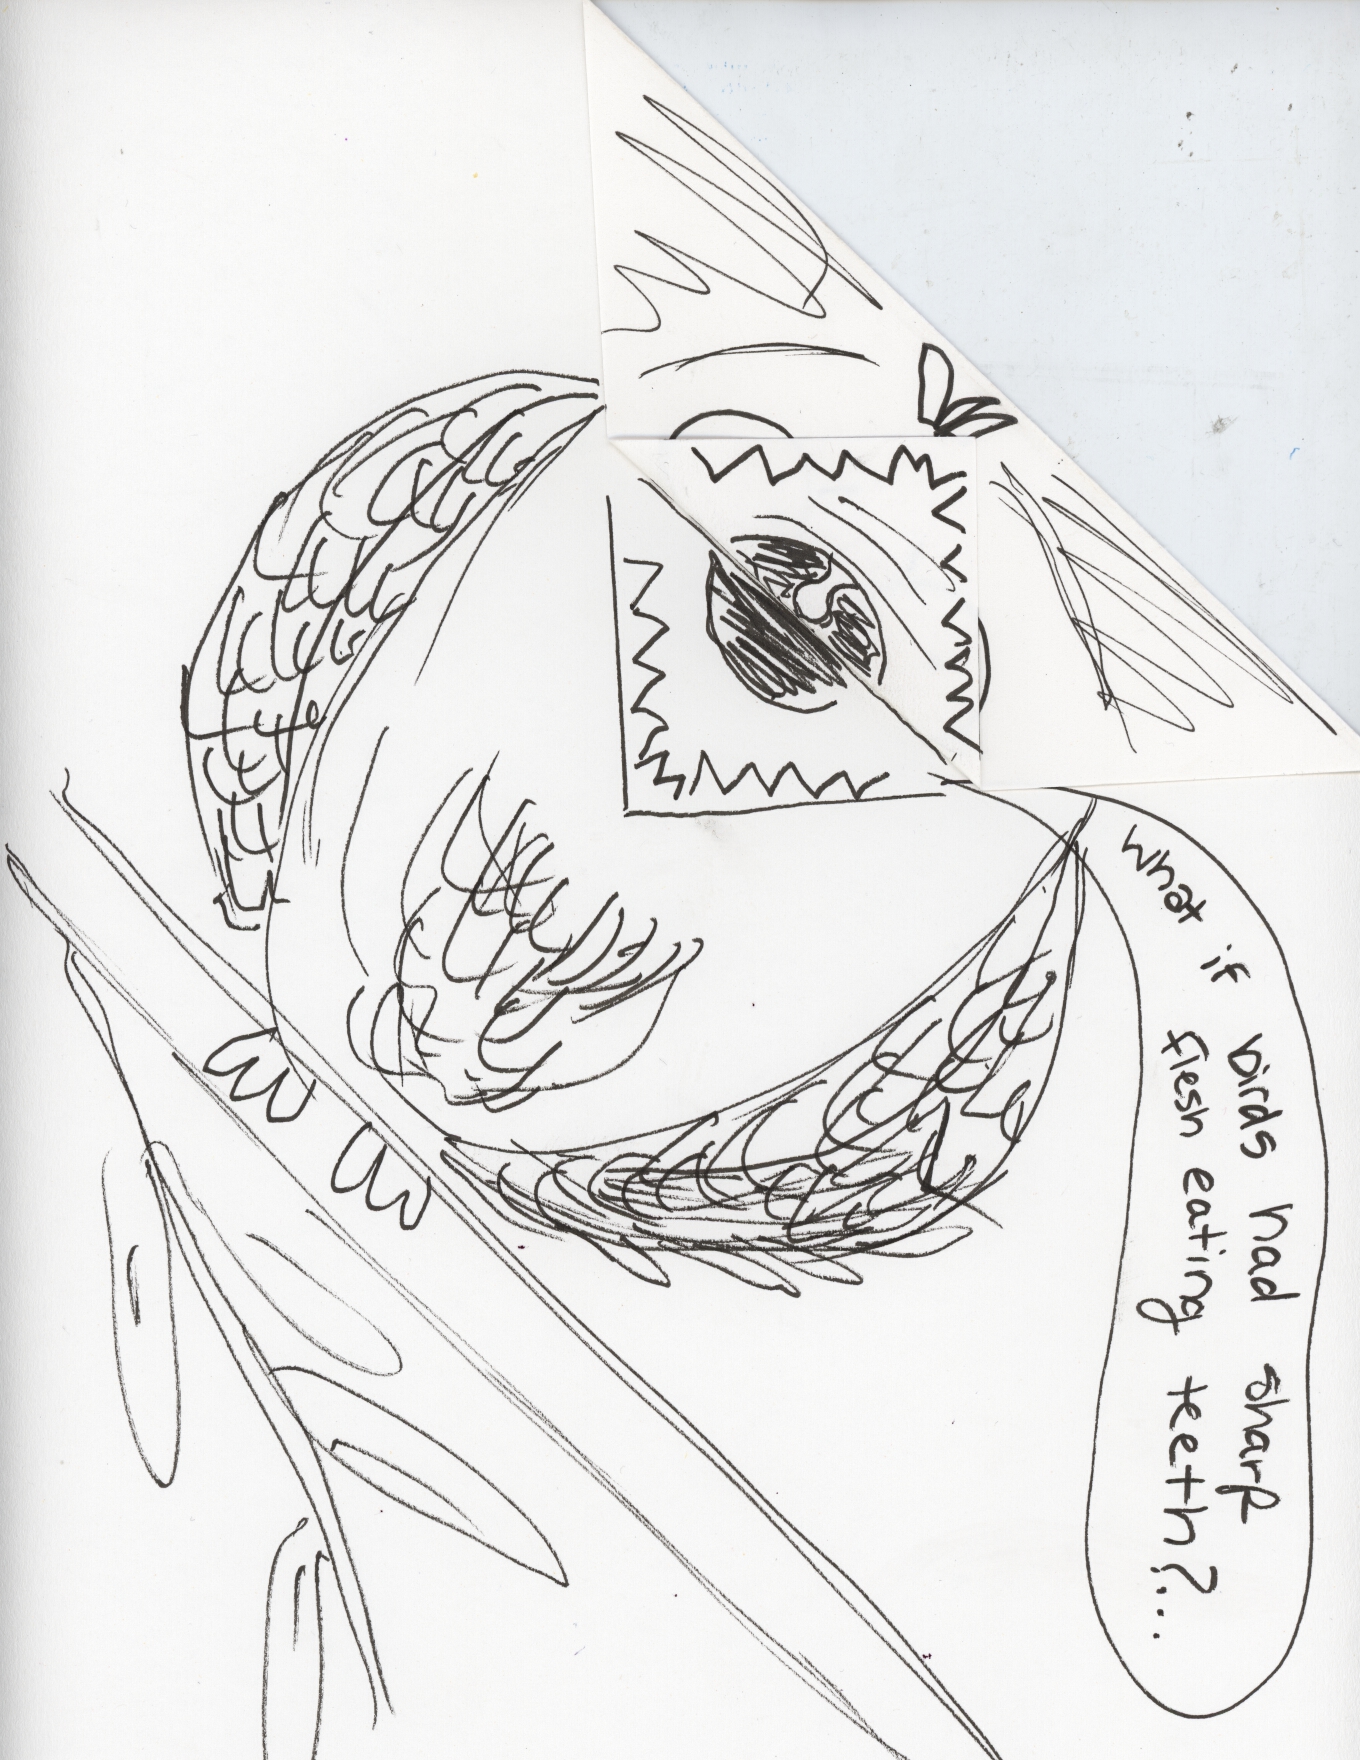 what if birds had sharp
flesh eating teeth?...